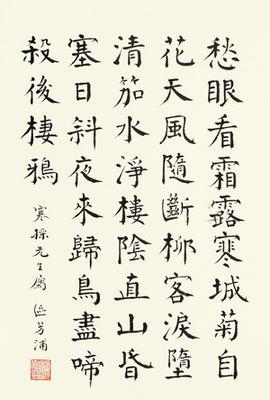 愁眼看霜露寒城菊自
花天風隨斷柳客淚墮
清笳水淨樓陰直山昏
塞日斜夜來歸鳥盡啼
殺後棲鴉
寒操先生屬 區芳浦